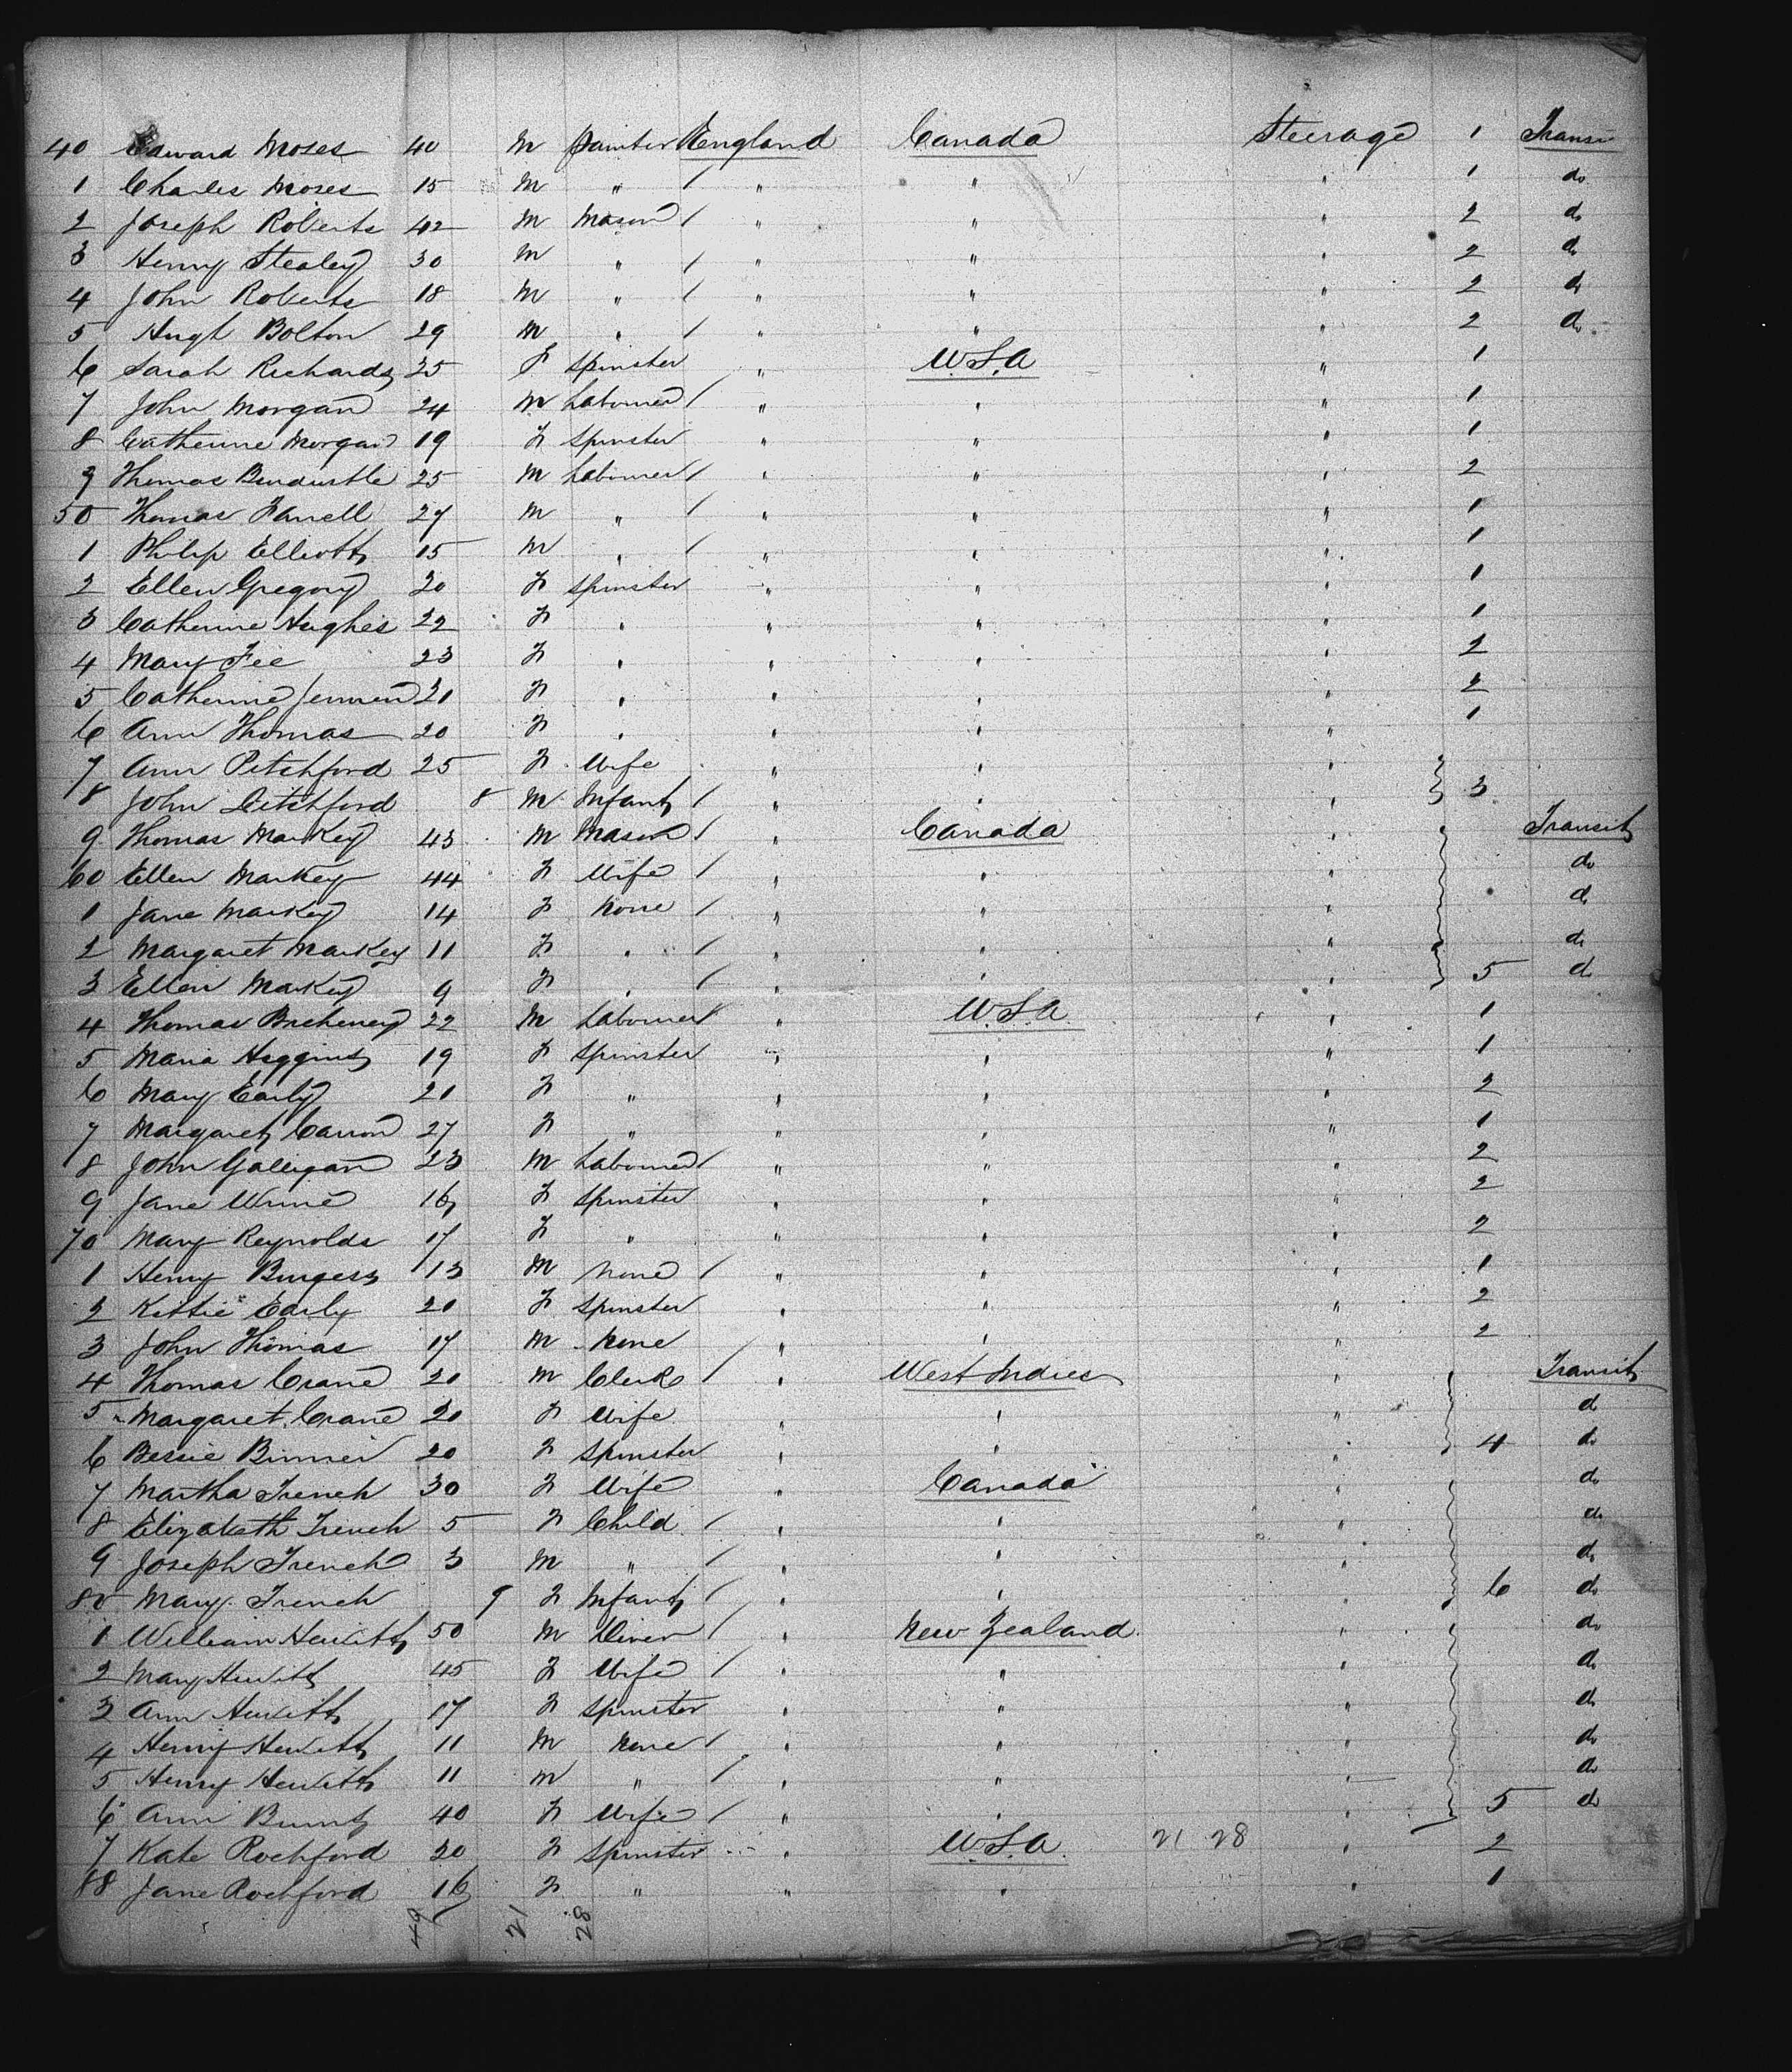 40 Edward Moses 40 M Painter England Canada Steerage 1 Transi
1 Charles Moses 15 M " / " " " 1 do
2 Joseph Roberts 42 M Mason / " " " 2 do
3 Henry Stealey 30 M " / " " " 2 do
4 John Roberts 18 M " / " " " 2 do
5 Hugh Bolton 29 M " / " " " 2 do
6 Sarah Richards 25 F Spinster " U.S.A " 1
7 John Morgan 24 M Labourer / " " " 1
8 Catherine Morgan 19 F Spinster " " " 1
9 Thomas 25 M Labourer / " " " 2
50 Thomas Farrell 27 M " / " " " 1
1 Philip Elliott 15 M " / " " " 1
2 Ellen Gregory 20 F Spinster " " " 1
3 Catherine Hughes 22 F " " " " 1
4 Mary Fee 23 F " " " " 2
5 Catherine 21 F " " " " 2
6 Ann Thomas 20 F " " " " 1
7 Ann Pitchford 25 F Wife " " "
8 John Pitchford 8 M Infant / " " " 3
9 Thomas Markey 43 M Mason / " Canada " Transit
60 Ellen Markey 44 F Wife / " " " do
1 Jane Markey 14 F None / " " " do
2 Margaret Markey 11 F " / " " " do
3 Ellen Markey 9 F " / " " " 5 do
4 Thomas Breheney 22 M Labourer " U.S.A. " 1
5 Maria Higgins 19 F Spinster " " " 1
6 Mary Early 21 F " " " " 2
7 Margaret Carron 27 F " " " " 1
8 John Galligan 23 M Labourer / " " " 2
9 Jane 16 F Spinster " " " 2
70 Mary Reynolds 17 F " " " " 2
1 Henry Burgess 13 M None / " " " 1
2 Kittie Early 20 F Spinster " " " 2
3 John Thomas 17 M None " " " 2
4 Thomas Crane 20 M Clerk / " West Indies " Transit
5 Margaret Crane 20 F Wife " " " do
6 Bessie Binner 20 F Spinster " " " 4 do
7 Martha French 30 F Wife " Canada " do
8 Elizabeth French 5 F Child / " " " do
9 Joseph French 3 M " / " " " do
80 Mary French 9 F Infant / " " " 6 do
1 William Hewitt 50 M / " New Zealand " do
2 Mary Hewitt 45 F Wife / " " " do
3 Ann Hewitt 17 F Spinster " " " do
4 Henry Hewitt 11 M None / " " " do
5 Henry Hewitt 11 M " / " " " do
6 Ann 40 F Wife / " " " 5 do
7 Kate Rochford 20 F Spinster " U.S.A. 21 28 " 2
88 Jane Rochford 16 F " " " " 1
49 21 28